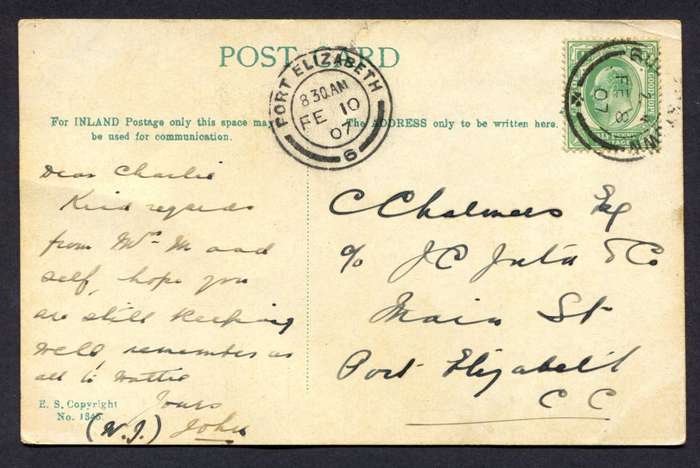 POST CARD
PORT ELIZABETH
8 30 AM
FE 10
07
6
GOOD HOPE
FE 8
07
For INLAND Postage only this space may
be used for communication.
The ADDRESS only to be written here.
Dear Charlie
Kind regards
from Mrs M and
self, hope you
are still keeping
well, remember us
all to Mattie
Yours
(W.J.) John
C Chalmers Esq
c/o J C Juta & Co
Main St
Port Elizabeth
C C
E. S. Copyright
No. 1345.